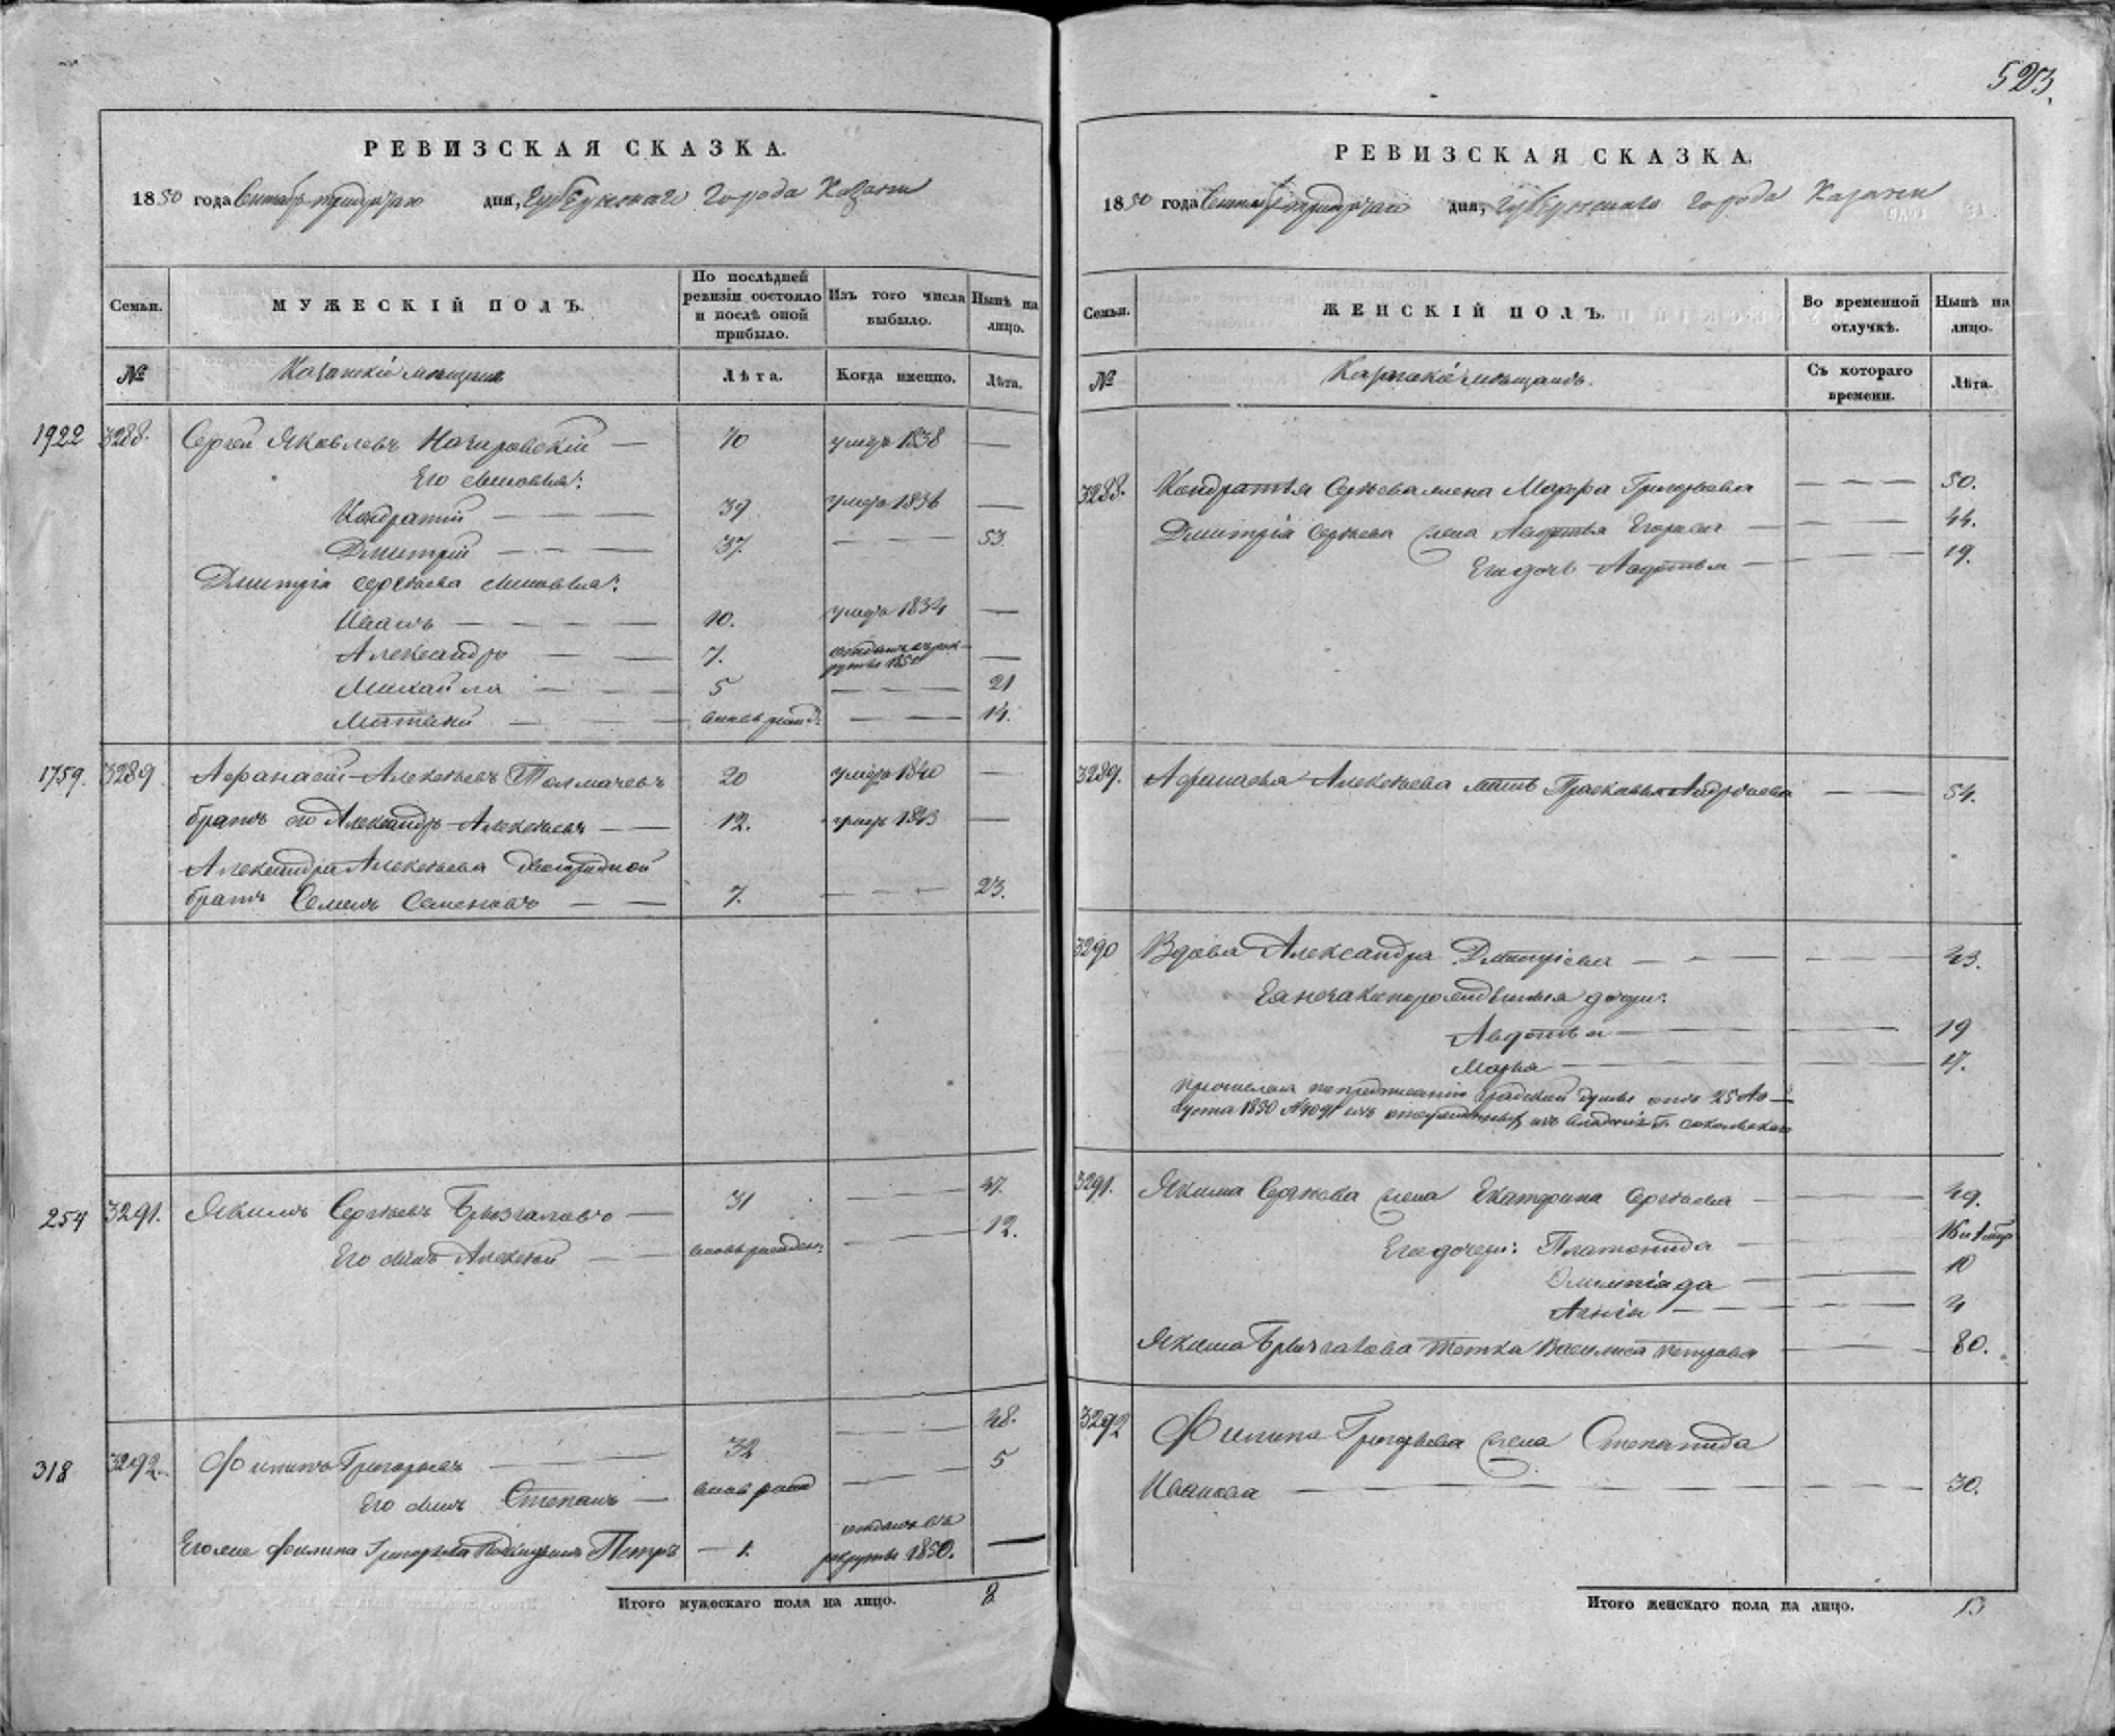 523.
РЕВИЗСКАЯ СКАЗКА.
1850 года Сентября тридцатаго дня, Губернскаго Города Казани
Семьи. МУЖЕСКІЙ ПОЛЪ. По послѣдней ревизіи состояло и послѣ оной прибыло. Изъ того числа выбыло. Нынѣ на лицо.
№ Казанскіе мещане Лѣта. Когда именно. Лѣта.
1922 3288. Сергей Яковлевъ — 70 умеръ 1838 —
Его сыновья:
Кондратий — — — 39 умеръ 1836 —
Дмитрій — — — 37. — — — 53.
Дмитрія Сергѣева сыновья:
Иванъ — — — — 10. умеръ 1834 —
Александръ — — — 7. отданъ въ рек-
руты 1854 —
Михайла — — — 5 — — — 21
Матвей — — — вновь рожд: — — — 14.
1759. 3289 Афанасій Алексѣевъ Толмачевъ 20 умеръ 1840 —
братъ его Александръ Алексѣевъ — — 12. умеръ 1843 —
Александра Алексѣева двоюродной
братъ Семенъ Семеновъ — — 7. — — — 23.
254 3291. Якимъ Сергѣевъ Брызгаловъ — 31 — — — 47.
Его сынъ Алексѣй — — вновь рожден: — — — 12.
318 3292. Филипъ Григорьевъ — — — 32 — — — 48.
Его сынъ Степанъ — вновь рожд — — — 5
Его же Филипа Григорьева Петръ — 1. отданъ въ
рекруты 1850. —
Итого мужескаго пола на лицо. 8
РЕВИЗСКАЯ СКАЗКА.
1850 года Сентября тридцатаго дня, Губернскаго Города Казани
Семьи. ЖЕНСКІЙ ПОЛЪ. Во временной отлучкѣ. Нынѣ на лицо.
№ Казанскіе мещане. Съ котораго времени. Лѣта.
3288. Кондратья Сергѣева жена Мавра Григорьева — — — 50.
Дмитрія Сергѣева жена Авдотья Егорова — — — 44.
Его дочь Авдотья — — — 19.
3289. Афанасья Алексѣева мать Прасковья Андреева — — 54.
3290 Вдова Александра Дмитріева — — — — — — 43.
Ея незаконорожденныя дочери:
Авдотья — — — — 19
Марья — — — — 17.
по предписанію Градской думы отъ 25 Ав-
густа 1850 № изъ изъ владенія Г.
3291. Якима Сергѣева жена Екатерина Сергѣева — — — 49.
Его дочери: Платонида — — —
Олимпіада — — — 10
Аннія — — — 4
Якима Брызгалова тетка Василиса Петрова — — — 80.
3292 Филипа Григорьева жена Степанида
Иванова — — — — — — 30.
Итого женскаго пола на лицо. 13